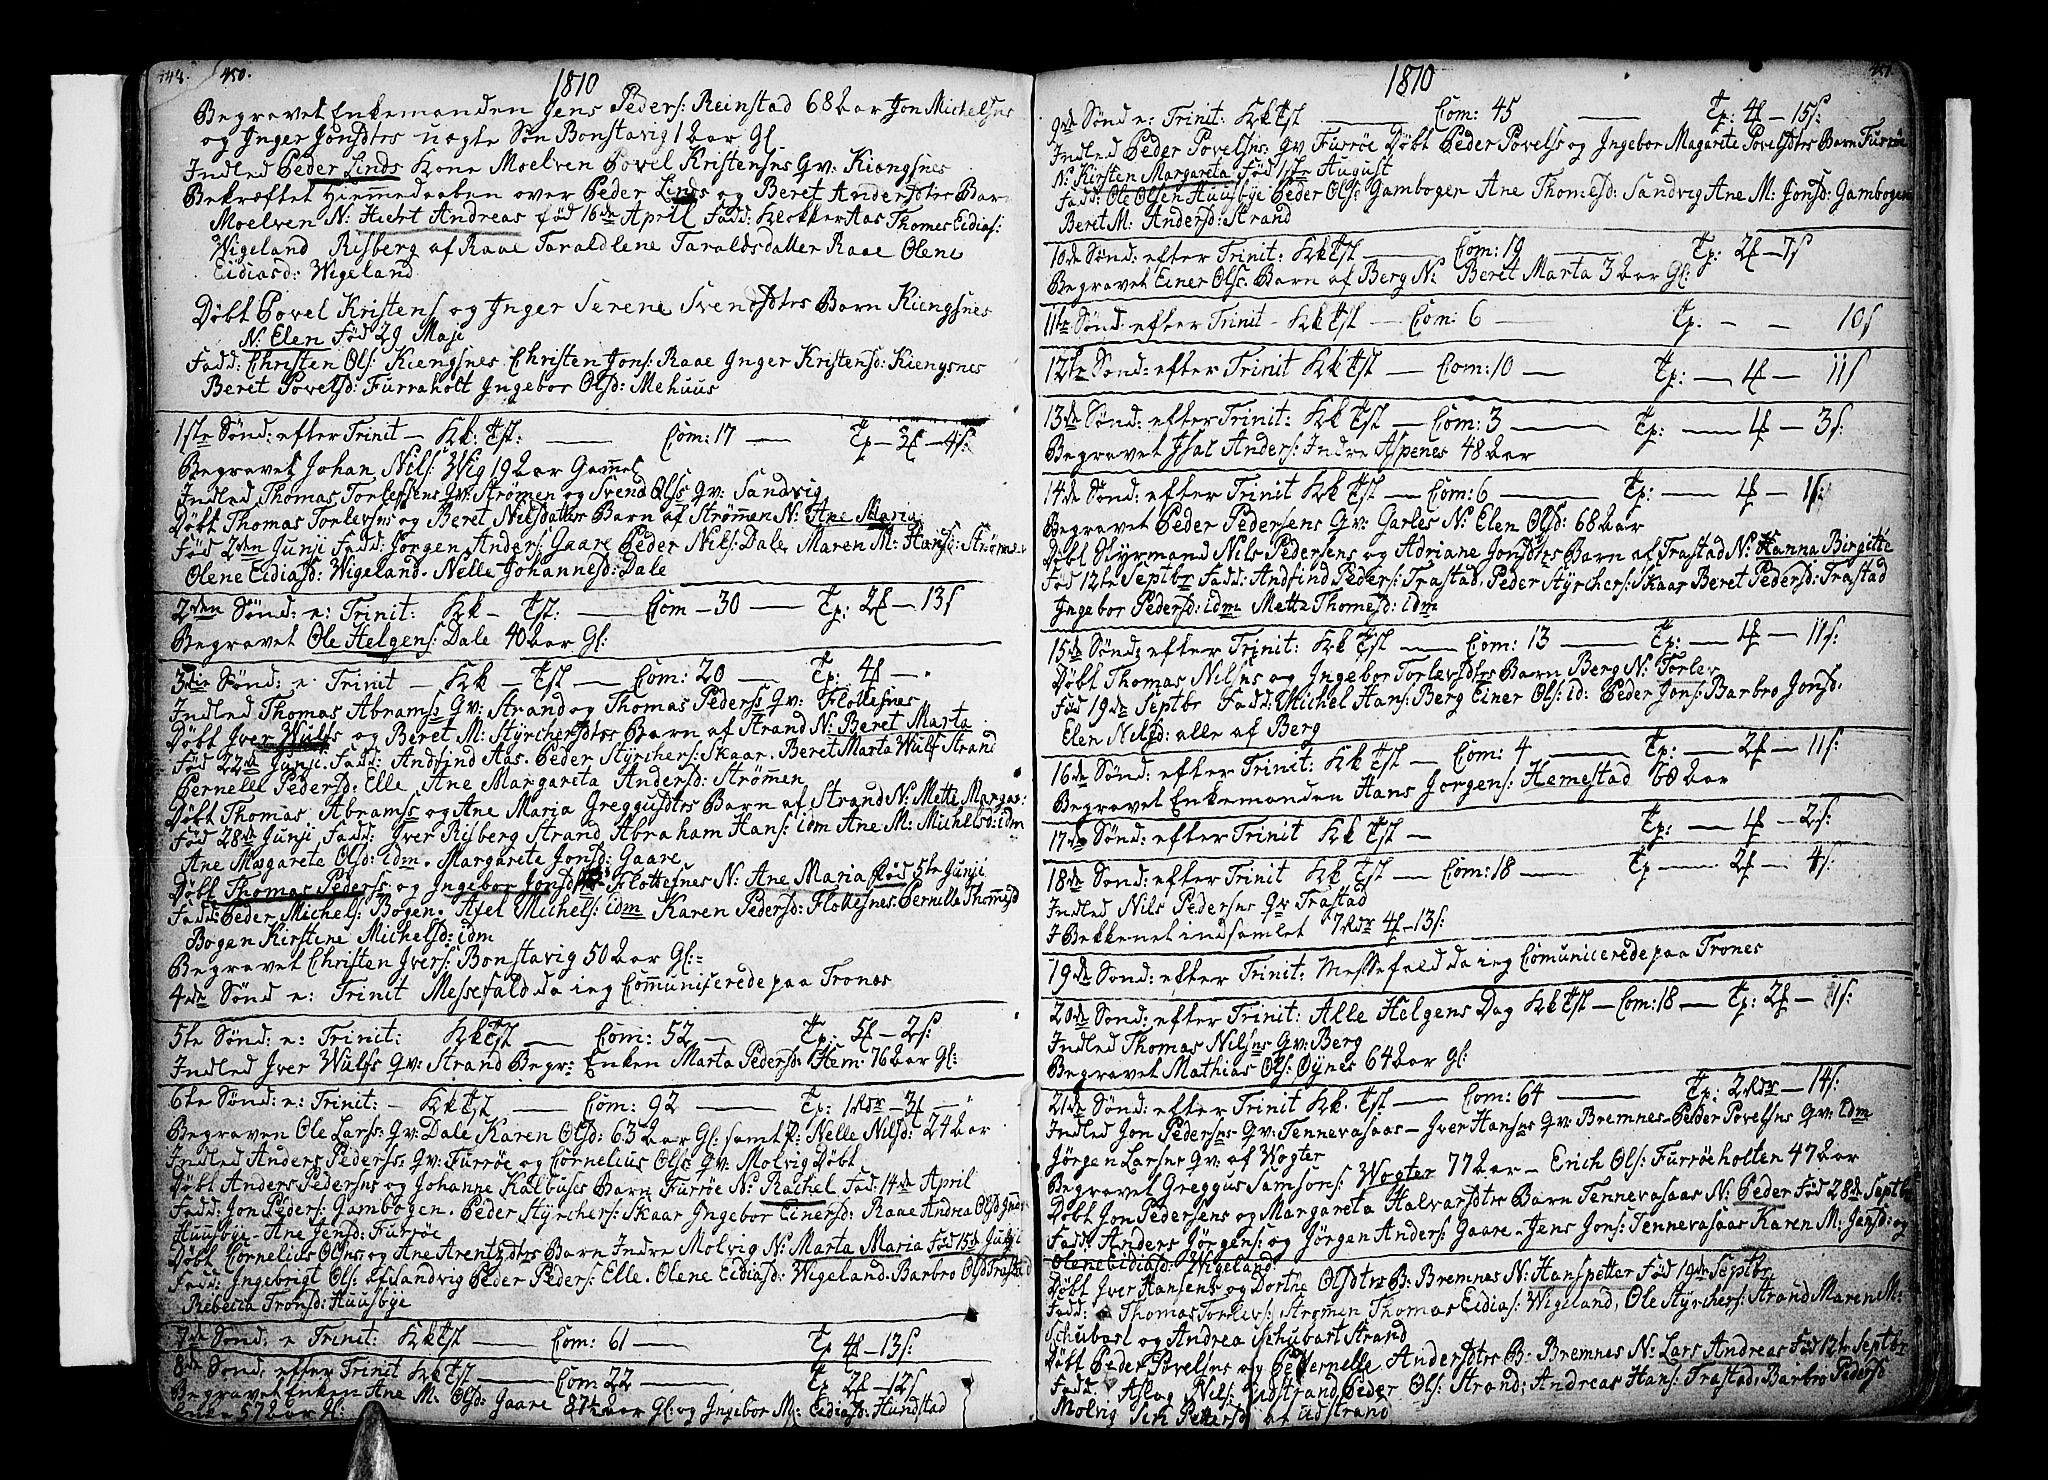 448. 450.
1810
Begravet Enkemanden Jens Peders: Reinstad 68 aar Jon Michelsns
og Inger Jonsdtrs uægte Søn Bonstavig 1 aar Gl.
Indled Peder Linds Kone Moelven Povel Kristensns Qv: Kiengsnes
Bekræftet Hiemmedaaben over Peder Linds og Beret Andersdtrs Barn
Moelven N: Andreas Fød 16de April Fadd: Klokker Aas Thomes Eidias:
Wigeland Risberg af Raae Taraldlene Taraldsdatter Raae Olene
Eidiasd: Wigeland
Døbt Povel Kristens og Inger Serene Svendsdtrs Barn Kiengsnes
N: Elen Fød 29 Maji
Fadd: Christen Ols: Kiengsnes Christen Jons: Raae Inger Kristensd: Kiengsnes
Beret Povelsd: Furraholt Ingebor Olsd: Mehuus
1ste Sønd: efter Trinit — Kk: Tst: — Com: 17 — Tp — 3f — 4s:
Begravet Johan Nils: Wig 19 aar Gammel
Indled Thomas Torlefsens Qv: Strømen og Svend Olss Qv: Sandvig
Døbt Thomas Torlevsns og Beret Nilsdatters Barn af Strømen N: Ane Maria
Fød 2den Junji Fadd: Jørgen Anders: Gaare Peder Nils: Dale, Maren M: Hansd: Strømen
Olene Eidiasd: Wigeland. Nelle Johannesd: Dale
2den Sønd: e: Trinit: Kk — Tst: — Com — 30 — Tp: 2f — 13s
Begravet Ole Helgens: Dale 40 aar Gl:
3die Sønd: e. Trinit — Kk — Tst — Com: 20 — Tp: 4f — .
Indled Thomas Abramss Qv: Strand og Thomas Pederss Qv: Flottesnes
Døbt Iver Wulfs og Beret M: Styrchersdtrs Barn af Strand N: Beret Marta
Fød 22de Junji. Fadd: Andfind Aas. Peder Styrchers: Skaar. Beret Marta Wulf Strand
Pernelle Pedersd: Elle, Ane Margareta Andersd: Strømen
Døbt Thomas Abramss og Ane Maria Greggusdtrs Barn af Strand N: Mette Margar:
Fød 28de Junji Fadd: Iver Risberg Strand Abraham Hans: idm Ane M: Michelsd: idm
Ane Margarete Olsd: idm. Margarete Jonsd: Gaare
Døbt Thomas Pederss og Ingebor Jonsdtrs Flottesnes N: Ane Maria Fød 5te Junji
Fadd: Peder Michels: Bogen. Axel Michels: idm Karen Pedersd: Flottesnes. Pernilla Thomesd
Bogen Kirstene Michelsd: idm
Begravet Christen Ivers: Bonstavig 50 aar Gl:
4de Sønd e: Trinit Messefald da ieg Communiserede paa Tronæs
5te Sønd: e: Trinit: Kk Tst — Com: 52 — Tp: 5f — 2s:
Indled Iver Wulfs Qv: Strand Begr: Enken Marta Pedersd: Hem 76 aar Gl:
6te Sønd: e: Trinit: — Kk Tst — Com: 92 — Tp: 1 Rdr — 3f — "
Begraven Ole Larss: Qv: Dale Karen Olsd: 63 aar Gl: samt P: Nelle Nilsd: 24 aar
Indled Anders Pederss: Qv: Furrøe og Cornelius Olss Qv: Molvig Døbt
Døbt Anders Pedersns og Johanne Kalbuses Barn Furrøe N: Rachel Fød: 14de April
Fadd: Jon Peders: Gambogen. Peder Styrchers: Skaar Ingebor Einersd: Raae Andrea Olsd
Huusbye — Ane Jensd: Furrøe
Døbt Cornelius Olsns og Ane Arentzdtrs Barn Indre Molvig N: Marta Maria Fød 15de Junji
Fadd: Ingebrigt Ols: af Sandvig Peder Peders: Elle. Olene Eidiasd: Wigeland. Barbro Olsd Trastad
Rebecca Tronsd: Huusbye
7de Sønd: e Trinit: Kk Tst — Com: 61 — Tp 4f — 13s:
8de Sønd: efter Trinit Kk Tst — Com 22 — Tp 2f — 12s
Begravet Enken Ane M: Olsd: Gaare 87½ aar Gl: og Ingebor M: Eidiasd: Hundstad
57 aar Gl:
451
1810
9de Sønd e: Trinit: Kk Tst — Com: 45 — Tp: 4f — 15s:
Indled Peder Povelsns: Qv Furrøe Døbt Peder Povelss og Ingebor Magarete Povelsdtrs Barn Furrøe
N: Kirsten Margareta Fød 1ste August
Fadd: Ole Olsen Huusbye Peder Ols: Gambogen Ane Thomesd: Sandvig Ane M: Jonsd: Gambogen
Beret M: Andersd: Strand
10de Sønd: efter Trinit: Kk Tst — Com: 19 — Tp: 2f — 7s
Begravet Einer Olss. Barn af Berg N: Beret Marta 3 aar Gl:
11te Sønd: efter Trinit — Kk Tst — Com: 6 — Tp: — — 10s
12te Sønd: efter Trinit Kk Tst — Com: 10 — Tp: — 1f — 11s
13de Sønd: efter Trinit: Kk Tst — Com: 3 — Tp: — 1f — 3s:
Begravet Isal Anders: Indre Aspenes 48 aar
14de Sønd: efter Trinit Kk Tst — Com: 6 — Tp: — 1f — 1s:
Begravet Peder Pedersens Qv: Garles N: Elen Olsd: 68 aar
Døbt Styrmand Nils Pedersens og Adriane Jonsdtrs Barn af Trastad N: Hanna Birgitte
Fød 12te Septbr Fadd: Andfind Peders: Trastad, Peder Styrchers: Skaar Beret Pedersd: Trastad
Ingebor Pedersd: idm Mette Thomesd: idm
15de Sønd: efter Trinit: Kk Tst — Com: 13 — Tp: — 1f — 11s:
Døbt Thomas Nilsns og Ingebor Torlevsdtrs Barn Berg N: Torlev
Fød 19de Septbr Fadd: Michel Hans: Berg Einer Ols: id: Peder Jons: Barbro Jonsd:
Elen Nilsd: alle af Berg
16de Sønd: efter Trinit: Kk Tst — Com: 4 — Tp: — 2f — 11s:
Begravet Enkemanden Hans Jørgens: Hemestad 68 aar
17de Sønd: efter Trinit Kk Tst — Tp: — 1f — 2s:
18de Sønd: efter Trinit Kk Tst — Com: 18 — Tp — 2f — 4s:
Indled Nils Pedersns Qv Trastad
I Bekkenet indsamlet 7 Rdr 4f — 13s:
19de Sønd: efter Trinit: Messefald da ieg Comunicerede paa Trones
20de Sønd: efter Trinit: Alle Helgens Dag Kk Tst — Com: 18 — Tp: 2f — 1s:
Indled Thomas Nilsns Qv: Berg
Begravet Mathias Ols: Øynes 64 aar Gl:
21de Sønd: efter Trinit Kk. Tst — Com: 64 — Tp: 2 Rdr — 14s:
Indled Jon Pedersns Qv: Tennevasaas — Iver Hansns Qv: Bremnes. Peder Povelsns Qv: idm
Jørgen Larsns Qv: af Wogter
Begravet Greggus Samsons: Wogter 77 aar — Erich Ols: Furrøeholten 47 aar
Døbt Jon Pedersens og Margareta Halvarsdtrs Barn Tennevasaas N: Peder Fød 28de Septbr
Fadd: Anders Jørgens: og Jørgen Anders: Gaare. Jens Jons: Tennevasaas Karen M: Jensd: og
Olene Eidiasd: Wigeland
Døbt Iver Hansens og Dorthe Olsdtrs B: Bremnes N: Hanspetter Fød 19de Septbr
Fadd: Thomas Torlevs: Strømen Thomas Eidias: Wigeland, Ole Styrchers: Strand Maren M:
Schubart og Andrea Schubart Strand
Døbt Peder Povelsns og Pernelle Andersdtrs B. Bremnes N: Lars Andreas Fød 12te Septbr
Fadd: Aslag Nils: Udstrand, Peder Ols: Strand; Andreas Hans: Trastad, Barbro Pedersd
Molvig Petersd af Udstrand